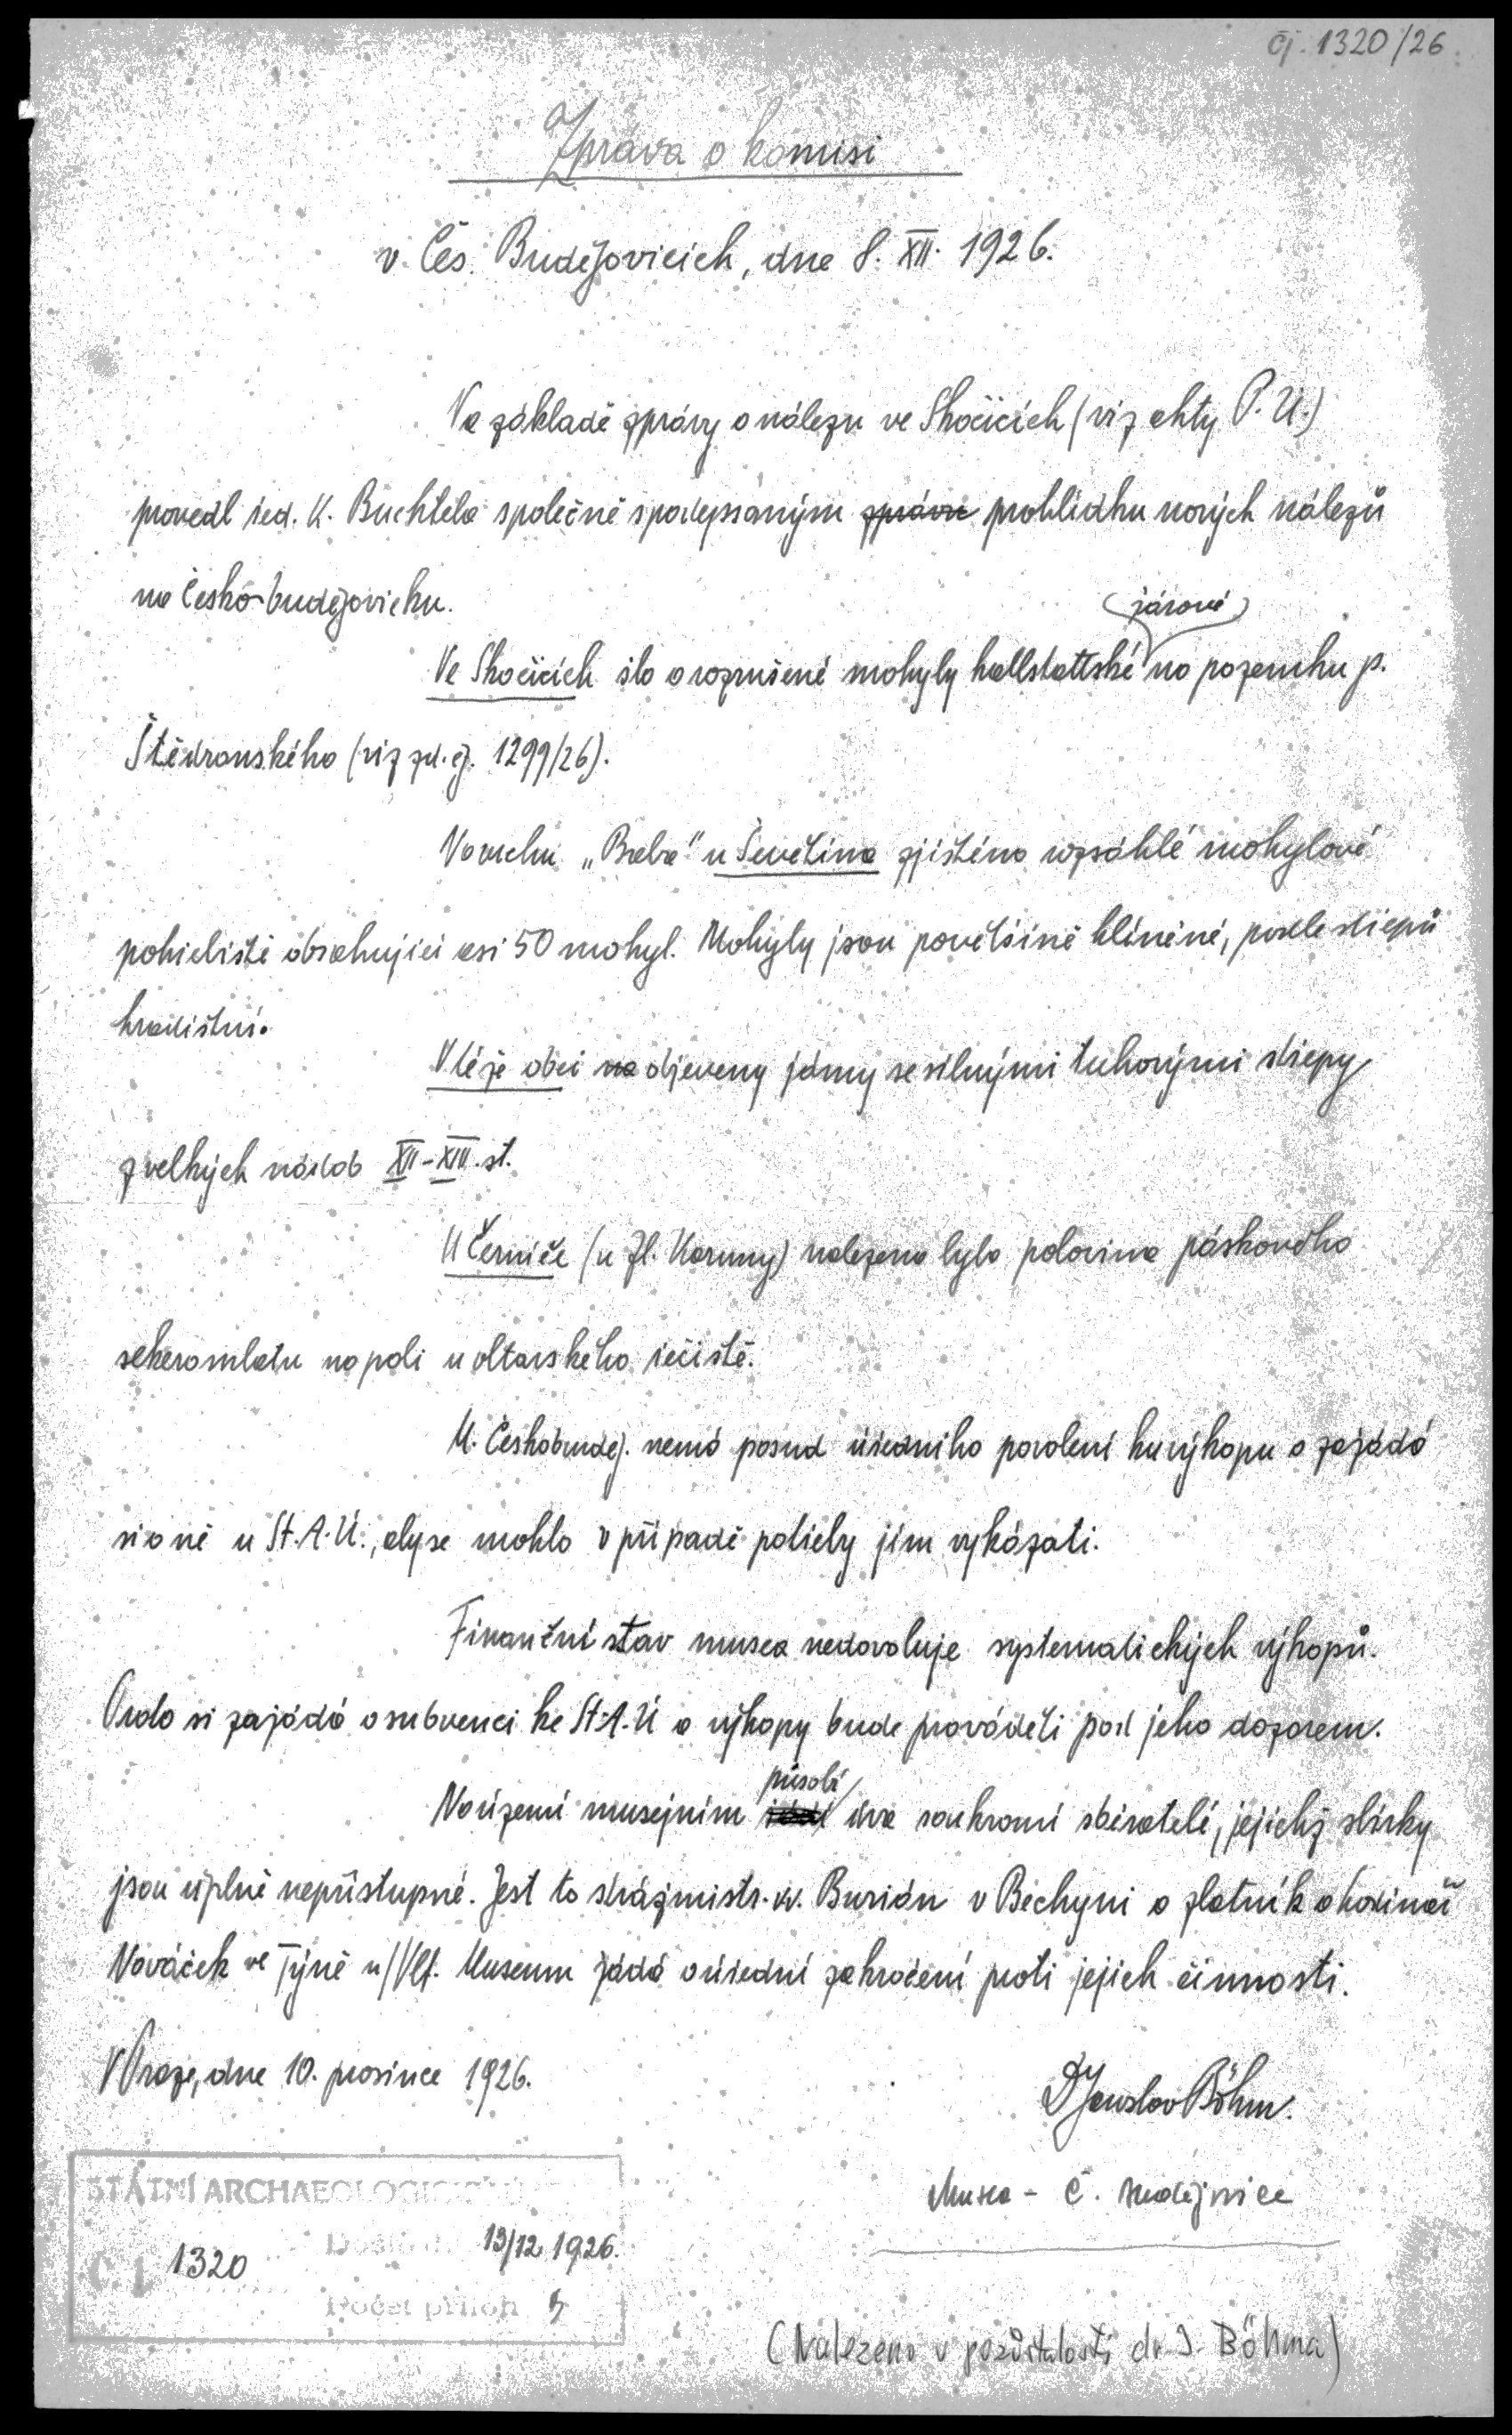 čj. 1320/26
Zpráva o komisi
v Čes. Budějovicích, dne 8. XII. 1926.
Na základě zprávy o nálezu ve Skočicích (viz akty P. Ú.)
provedl řed. K. Buchtela společně s podepsaným zprávu prohlídku nových nálezů
na Česko-budějovicku.
žárové
Ve Skočicích šlo o rozrušené mohyly hallstattské na pozemku p.
Štědronského (viz zd. čj. 1299/26).
Na vrchu „Baba" u Ševětína zjištěno rozsáhlé mohylové
pohřebiště obsahující asi 50 mohyl. Mohyly jsou povětšině hliněné, podle střepů
hradištní.
V téže obci na objeveny jámy se silnými tuhovými střepy
z velkých nádob XII-XIII. st.
U Černiče (u Zl. Koruny) nalezena byla polovina páskového
sekeromlatu na poli u oltářského řečiště.
M. Českobuděj. nemá posud úředního povolení ku výkopu a zažádá
si o ně u St. A. Ú., aby se mohlo v případě potřeby jím vykázati.
Finanční stav musea nedovoluje systematických výkopů.
Proto si zažádá o subvenci ke St. A. Ú a výkopy bude prováděti pod jeho dozorem.
působí
Na území musejním dva soukromí sběratelé, jejichž sbírky
jsou úplně nepřístupné. Jest to strážmistr. v. Burián v Bechyni a zlatník a hodinář
Nováček ve Týně n/Vlt. Museum žádá o úřední zakročení proti jejich činnosti.
V Praze, dne 10. prosince 1926.
Dr Jaroslav Böhm.
Musea - Č. Budějovice
STÁTNÍ ARCHAEOLOGICKÝ
Došlo d. 13/12 1926.
Č. j. 1320
Počet příloh
(Nalezeno v pozůstalosti dr. J. Böhma)